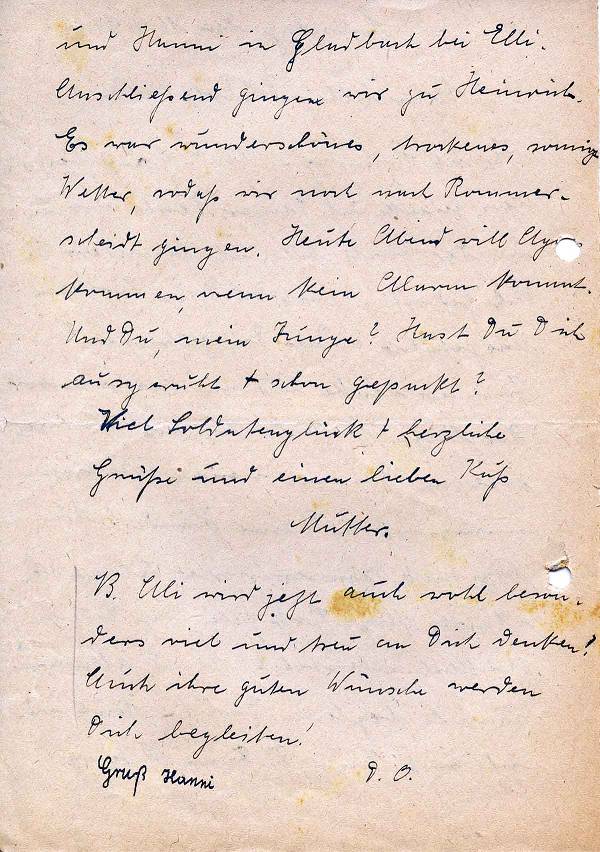 und Hanni in Gladbach bei Elli.
Anschließend gingen wir zu Heinrich.
Es war wunderschönes, trockenes, sonnige
Wetter, sodaß wir noch nach Rommer-
scheidt gingen. Heute Abend will Agnes
kommen, wenn kein Alarm kommt.
Und Du, mein Junge? Hast Du Dich
ausgeruht + schon gepackt?
Viel Soldatenglück + herzliche
Grüße und einen lieben Kuß
Mutter.
B. Uli wird jetzt auch wohl beson-
ders viel und treu an Dich denken!
Auch ihre guten Wünsche werden
Dich begleiten!
Gruß Hanni
D. O.